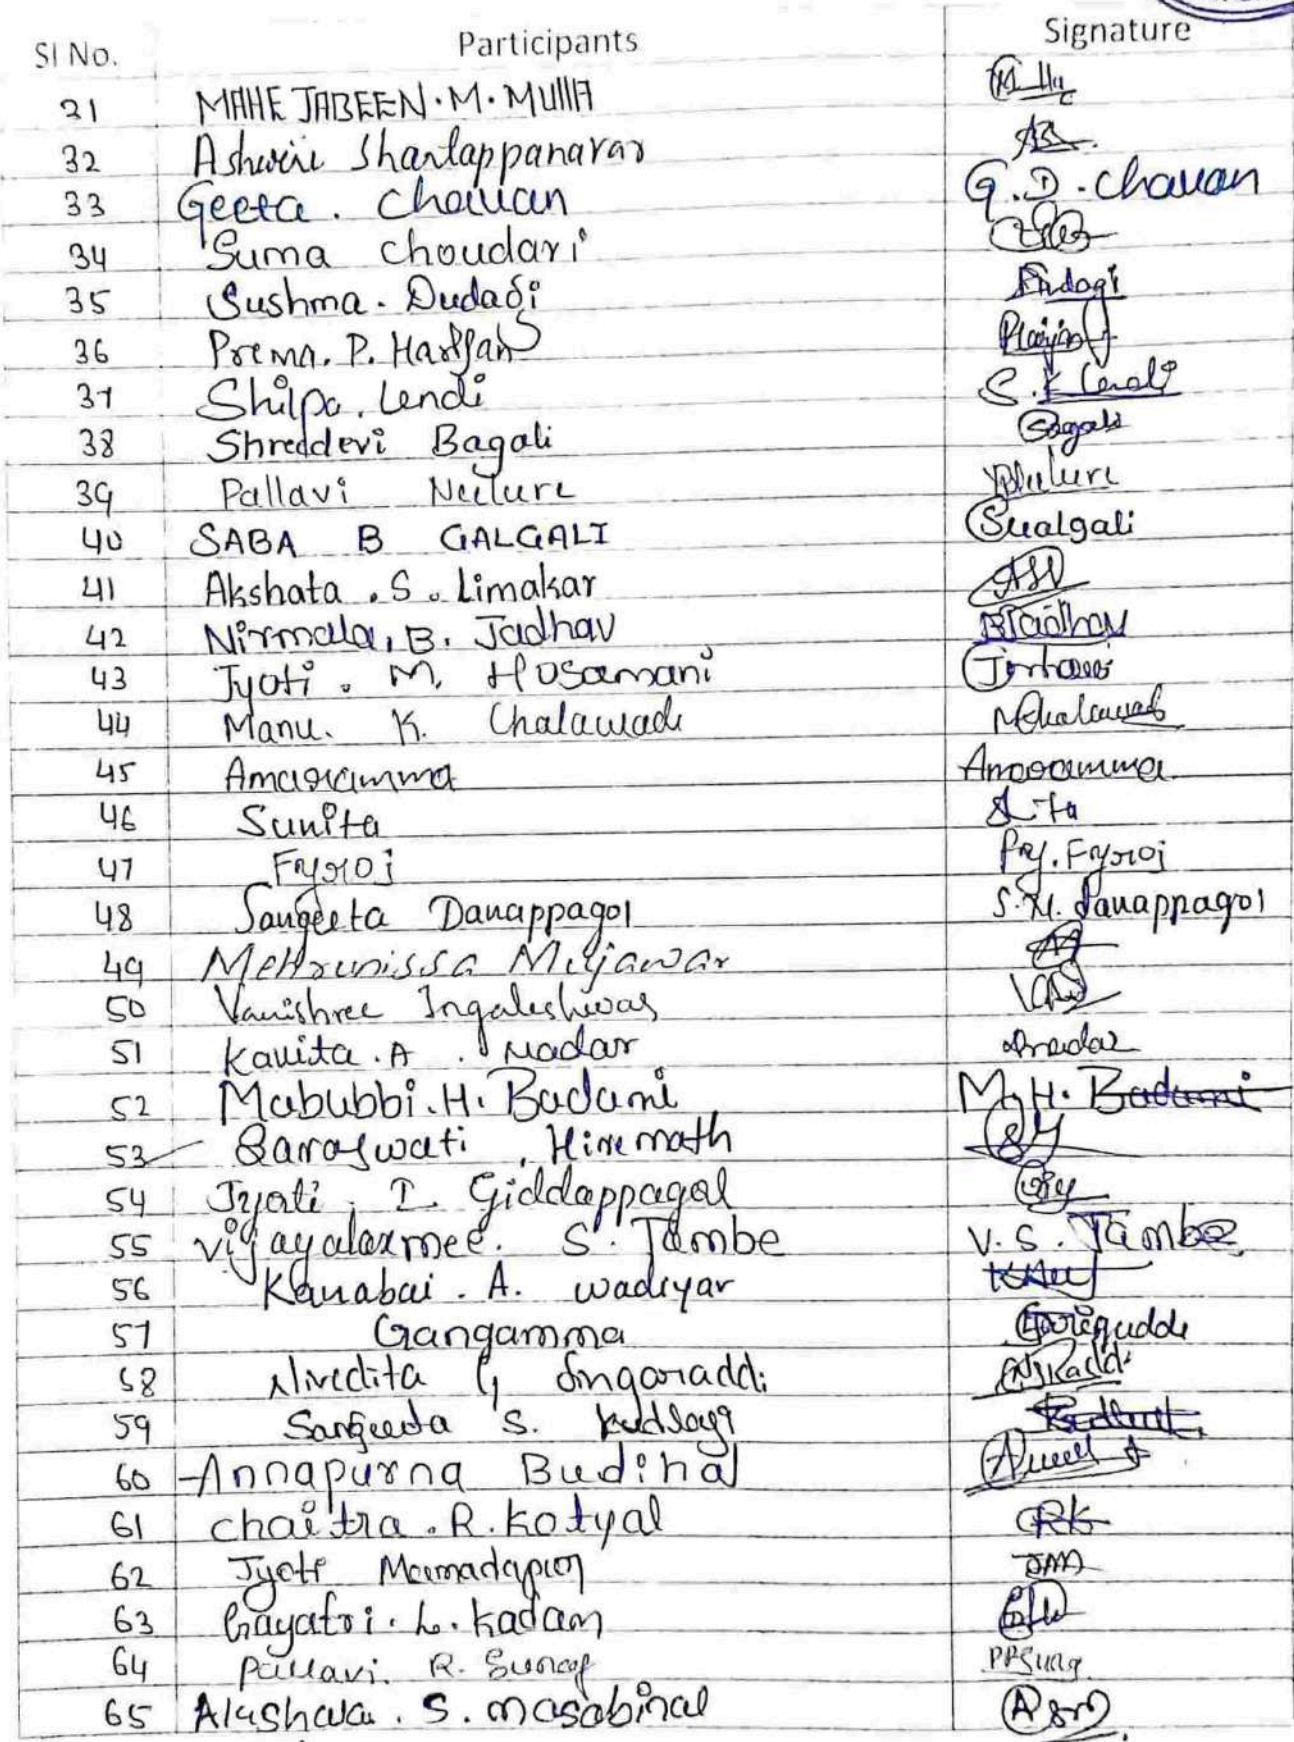 Sl No. Participants Signature
31 MAHEJABEEN. M. MUllA
32 Ashwini Shantappanavar
33 Geeta. Chauan G.D. Chauan
34 Suma Choudari
35 Sushma. Dudagi Dudagi
36 Prema. P. Harijan
37 Shilpa. Lendi S.K Lendi
38 Shreedevi Bagali Bagali
39 Pallavi Neelure
40 SABA B GALGALI
41 Akshata. S. Limakar
42 Nirmala. B. Jadhav BJadhav
43 Jyoti. M. Hosamani
44 Manu. K. Chalawadi
45 Amaramma Amaramma
46 Sunita
47 Fyroj Fyroj
48 Sangeeta Danappagol S.M. Danappagol
49 Mehrunissa Mujawar
50 Vanishree Ingaleshwar
51 Kavita. A. Madar
52 Mabubbi. H. Badami M.H. Badami
53 Saraswati. Hiremath
54 Jyoti. I. Giddappagol
55 Vijayalaxmee. S. Tambe V. S. Tambe
56 Kanabai. A. Wadiyar
57 Gangamma
58 Nivedita G Singaraddi
59 Sangeeta S. Kudlagi
60 Annapurna Budihal
61 Chaitra. R. Kotyal CRK
62 Jyoti Mamadapur JMM
63 Gayatri. L. Kadam
64 Pallavi. R. Sunag PRSunag
65 Akshata. S. Masabinal